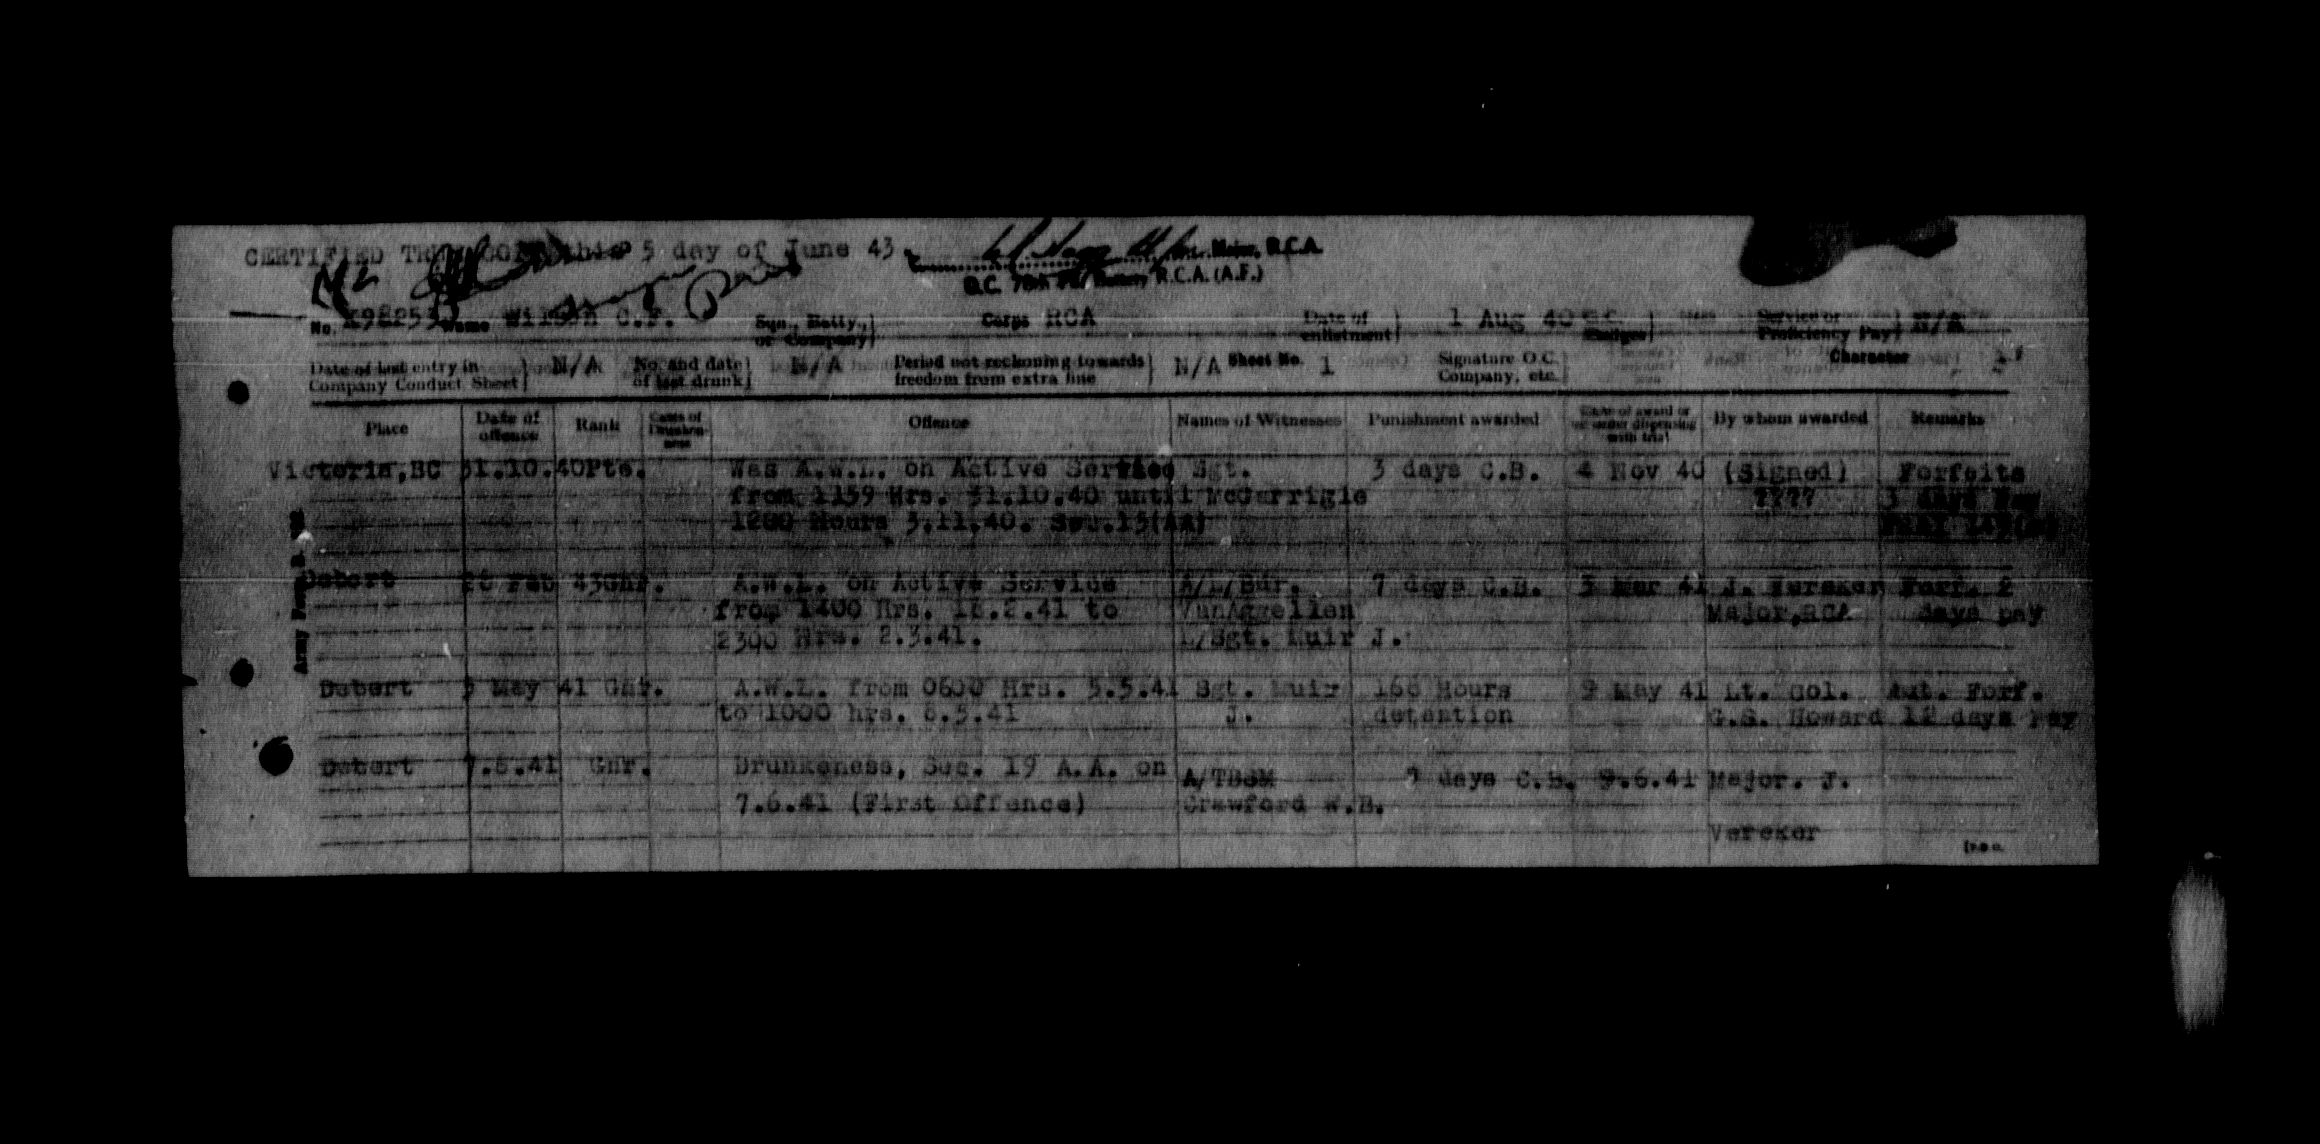 CERTIFIED TRUE COPY this 5 day of June 43
Major, R.C.A.
O.C. Battery, R.C.A. (A.F.)
No. K98253 Name Wilson C.F. Sqn., Batty., or Company Corps RCA Date of enlistment 1 Aug 40 Badges Service or Proficiency Pay N/A
Date of last entry in Company Conduct Sheet N/A No. and date of last drunk N/A Period not reckoning towards freedom from extra fine N/A Sheet No. 1 Signature O.C. Company, etc. Character
Place Date of offence Rank Cases of Drunkenness Offence Names of Witnesses Punishment awarded Date of award or of order dispensing with trial By whom awarded Remarks
Victoria, BC 31.10.40 Pte. Was A.W.L. on Active Service Sgt. 3 days C.B. 4 Nov 40 (Signed) Forfeits
from 1159 Hrs. 31.10.40 until McGarrigle ???? 3 days Pay
1200 Hours 3.11.40. Sec.15(AA)
Army Form B.
Debert Feb 43 Gnr. A.W.L. on Active Service A/L/Bdr. 7 days C.B. 3 Mar 41 J. Vereker Forf. 2
from 1400 Hrs. 2.41 to VanAggellen Major, RCA days pay
2300 Hrs. 2.3.41. L/Sgt. Muir J.
Debert 5 May 41 Gnr. A.W.L. from 0600 Hrs. 5.5.41 Sgt. Muir 168 Hours 9 May 41 Lt. Col. Aut. Forf.
to 1000 hrs. 8.5.41 J. detention G.S. Howard 12 days Pay
Debert 7.6.41 Gnr. Drunkeness, Sec. 19 A.A. on A/TBSM 7 days C.B. 9.6.41 Major. J.
7.6.41 (First Offence) Crawford W.B.
Vereker
[P.T.O.